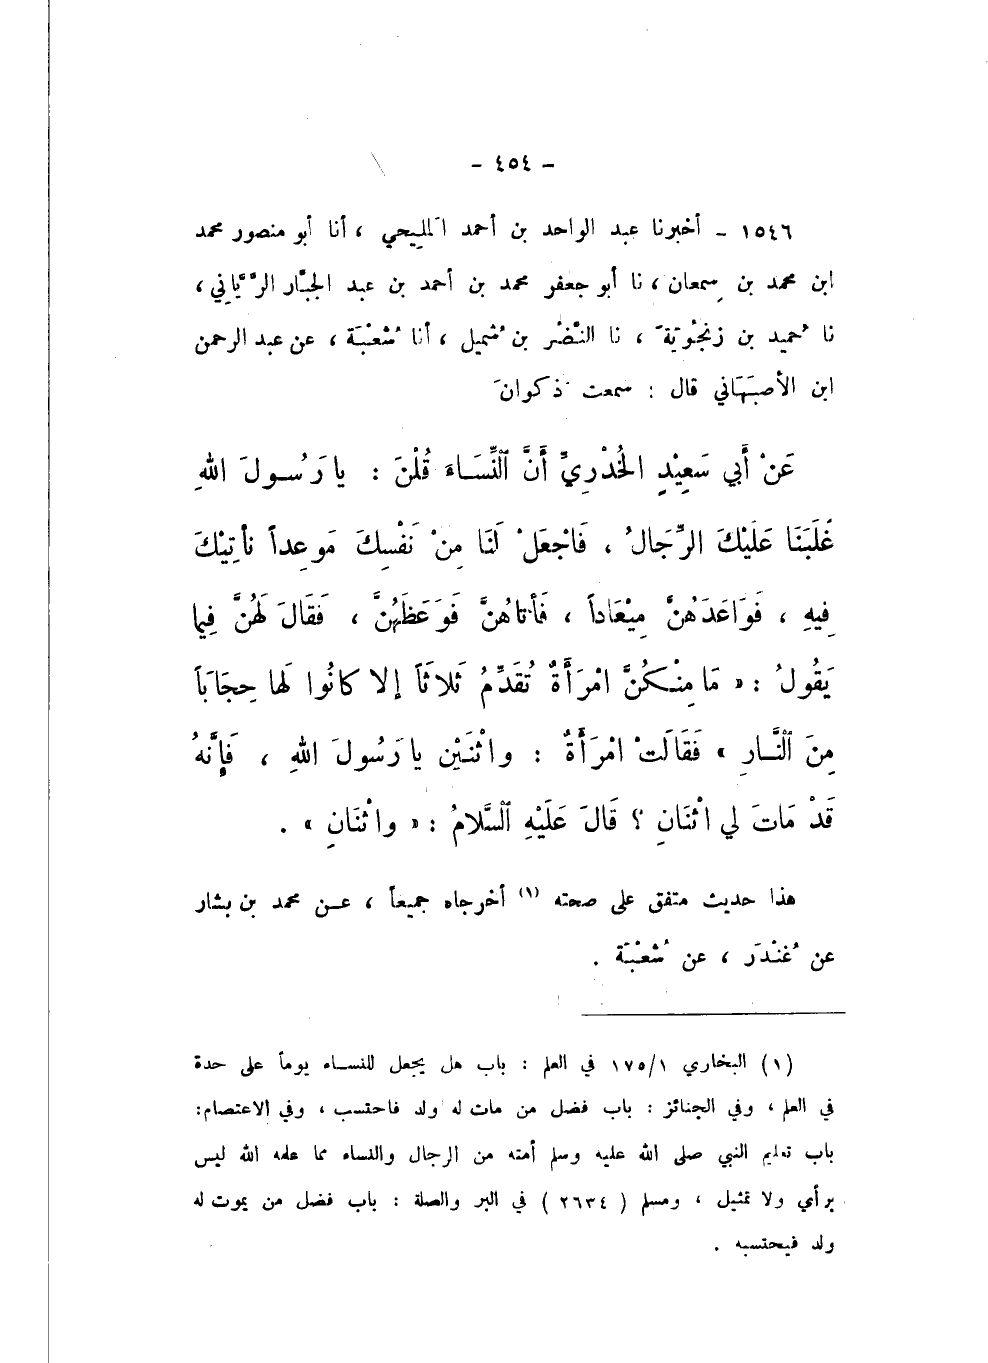 - ٤٥٤ -
١٥٤٦ - أخبرنا عبد الواحد بن أحمد المَليحي ، أنا أبو منصور محمد
ابن محمد بن سِمعان ، نا أبو جعفر محمد بن أحمد بن عبد الجبَّار الرَّيَّاني ،
نا حُميد بن زنجُوْيَةَ ، نا النَّضْر بن شُميل ، أنا شُعْبَة ، عن عبد الرحمن
ابن الأصبَهاني قال : سمعت ذَكوانَ
عَنْ أَبي سَعِيْدٍ الخُدْرِيِّ أَنَّ النِّسَاءَ قُلْنَ : يا رَسُولَ اللهِ
غَلَبَنَا عَلَيْكَ الرِّجَالُ ، فَاجْعَلْ لَنَا مِنْ نَفْسِكَ مَوعِداً نأتِيْكَ
فِيهِ ، فَوَاعَدَهُنَّ مِيْعَاداً ، فَأَتاهُنَّ فَوَعَظَهُنَّ ، فَقَالَ لَهُنَّ فِيما
يَقُولُ : « مَا مِنْكُنَّ امْرَأَةٌ تُقَدِّمُ ثَلاثَاً إلا كانُوا لَها حِجَابَاً
مِنَ النَّارِ » فَقَالَتْ امْرَأَةٌ : واثْنَيْن يا رَسُولَ اللهِ ، فَإِنَّهُ
قَدْ مَاتَ لي اثْنَانِ ؟ قَالَ عَلَيْهِ السَّلامُ : « واثْنَانِ » .
هذا حديث متفق على صحته (١) أخرجاه جميعاً ، عن محمد بن بشار
عن غُنْدَر ، عن شُعْبَة .
(١) البخاري ١٧٥/١ في العلم : باب هل يجعل للنساء يوماً على حدة
في العلم ، وفي الجنائز : باب فضل من مات له ولد فاحتسب ، وفي الاعتصام :
باب تعليم النبي صلى الله عليه وسلم أمته من الرجال والنساء مما علمه الله ليس
برأي ولا تمثيل ، ومسلم ( ٢٦٣٤ ) في البر والصلة : باب فضل من يموت له
ولد فيحتسبه .